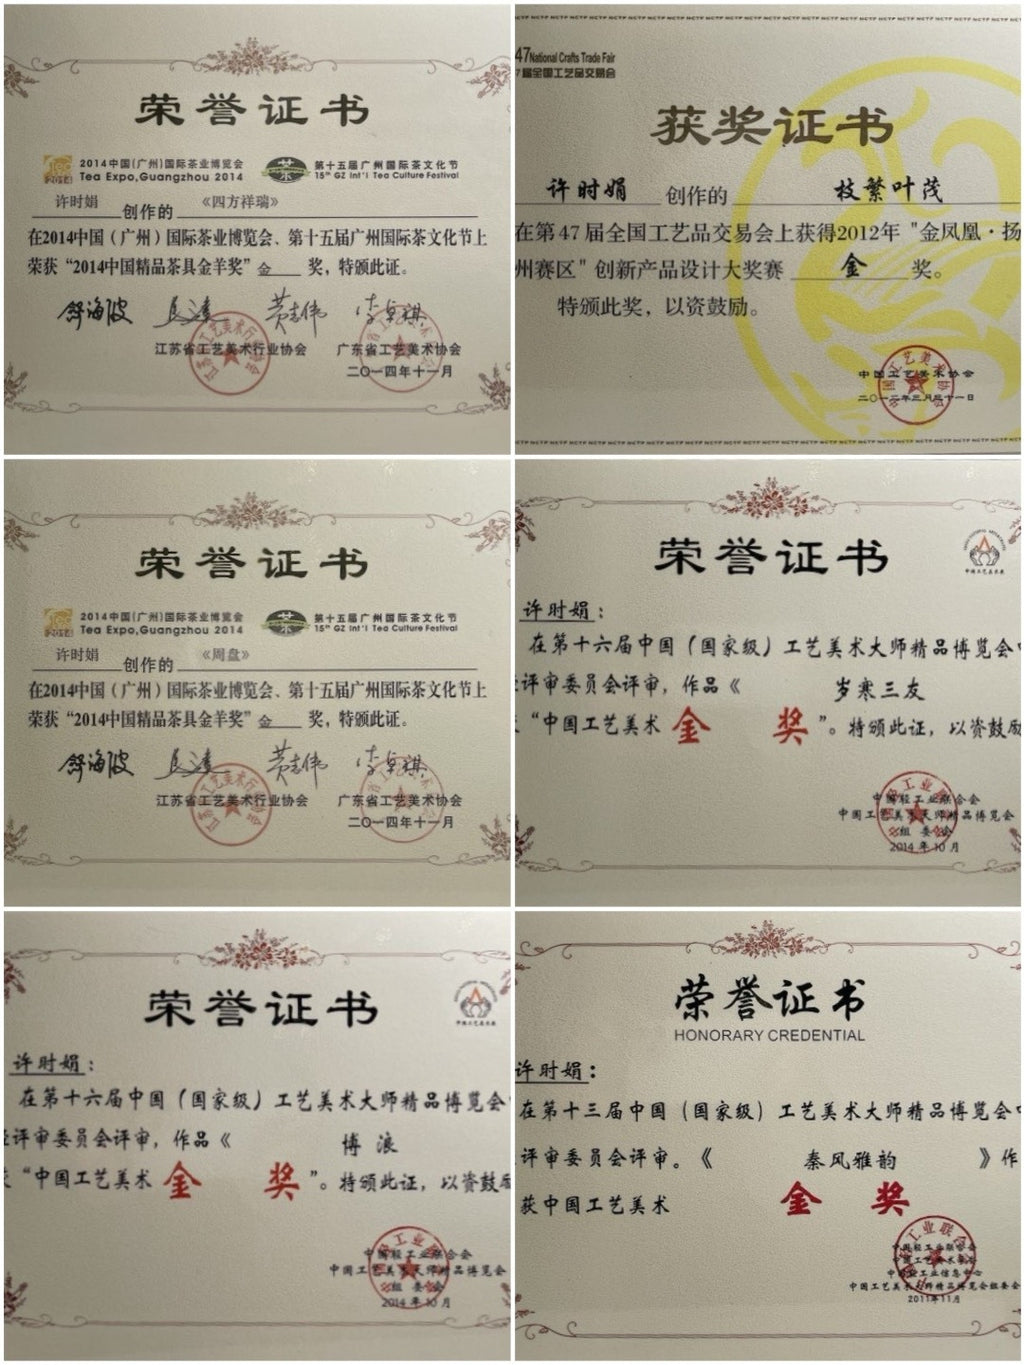 荣誉证书
2014中国(广州)国际茶业博览会
Tea Expo,Guangzhou 2014
第十五届广州国际茶文化节
15th GZ Int'l Tea Culture Festival
许时娟 创作的 《四方祥瑞》
在2014中国（广州）国际茶业博览会、第十五届广州国际茶文化节上
荣获“2014中国精品茶具金羊奖” 金 奖，特颁此证。
江苏省工艺美术行业协会 广东省工艺美术协会
二〇一四年十一月
47National Crafts Trade Fair
届全国工艺品交易会
获奖证书
许时娟 创作的 枝繁叶茂
在第47届全国工艺品交易会上获得2012年 "金凤凰·扬
州赛区" 创新产品设计大奖赛 金 奖。
特颁此奖，以资鼓励。
中国工艺美术协会
二〇一二年三月三十一日
荣誉证书
2014中国(广州)国际茶业博览会
Tea Expo,Guangzhou 2014
第十五届广州国际茶文化节
15th GZ Int'l Tea Culture Festival
许时娟 创作的 《周盘》
在2014中国（广州）国际茶业博览会、第十五届广州国际茶文化节上
荣获“2014中国精品茶具金羊奖” 金 奖，特颁此证。
江苏省工艺美术行业协会 广东省工艺美术协会
二〇一四年十一月
荣誉证书
许时娟：
在第十六届中国（国家级）工艺美术大师精品博览会
评审委员会评审，作品《 岁寒三友
“中国工艺美术 金 奖 ”。特颁此证，以资鼓励
中国轻工业联合会
中国工艺美术大师精品博览会
组 委 会
2014 年 10 月
荣誉证书
许时娟：
在第十六届中国（国家级）工艺美术大师精品博览会
评审委员会评审，作品《 博 浪
“中国工艺美术 金 奖 ”。特颁此证，以资鼓励
中国轻工业联合会
中国工艺美术大师精品博览会
组 委 会
2014 年 10 月
荣誉证书
HONORARY CREDENTIAL
许时娟：
在第十三届中国（国家级）工艺美术大师精品博览会
评审委员会评审。《 秦风雅韵 》作
获中国工艺美术 金 奖
中国轻工业联合会
中国轻工业信息中心
中国工艺美术大师精品博览会组委会
2011年11月